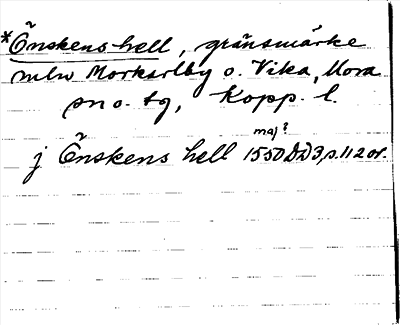 *Õnskens hell, gränsmärke
mln Morkarlby o. Vika, Mora
sn o. tg, Kopp. l.
maj?
j Õnskens hell 1550 DD3, s. 112 or.